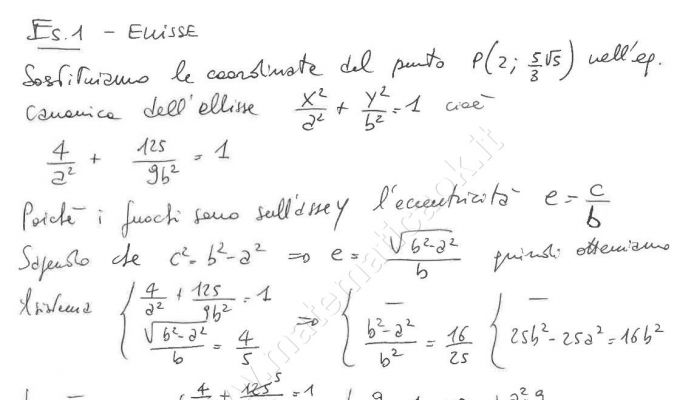 Es.1 - Ellisse
Sostituiamo le coordinate del punto P(2; 5/3 √5) nell'eq.
canonica dell'ellisse x²/a² + y²/b² = 1 cioè
4/a² + 125/9b² = 1
Poichè i fuochi sono sull'asse y l'eccentricità e = c/b
Sapendo che c² = b² - a² ⇒ e = √(b²-a²)/b quindi otteniamo
il sistema { 4/a² + 125/9b² = 1 ; √(b²-a²)/b = 4/5 ⇒ { — ; b²-a²/b² = 16/25 { — ; 25b² - 25a² = 16b²
4/ + 125⁵/ = 1
www.matematicaok.it